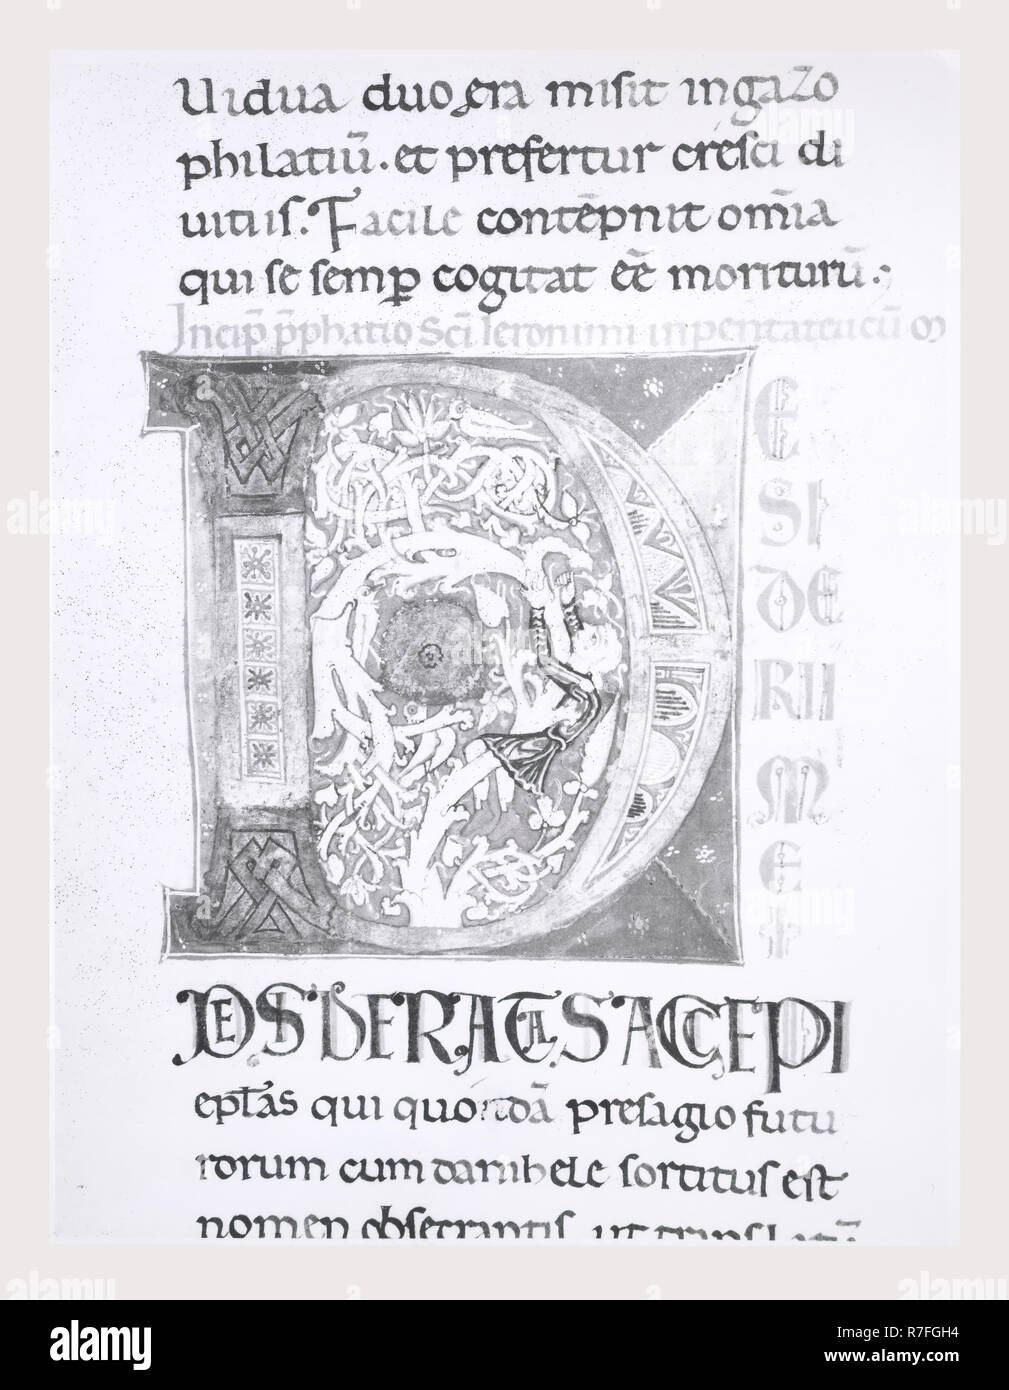 Uidua duo ęra misit in gazo
philatiū. et prefertur cresi di
uitiis. Facile contēpnit om̄ia
qui se semꝑ cogitat eē̄ moriturū.
Incip̄ p̄phatio Sc̄i Ieronimi in pentateucū m
D
E
SI
DE
RII
M
E
I
DESIDERATAS ACCEPI
epłas qui quodā presagio futu
rorum cum danihele sortitus est
nomen obsecrantis ut translatā
alamy
Image ID: R7FGH4
www.alamy.com